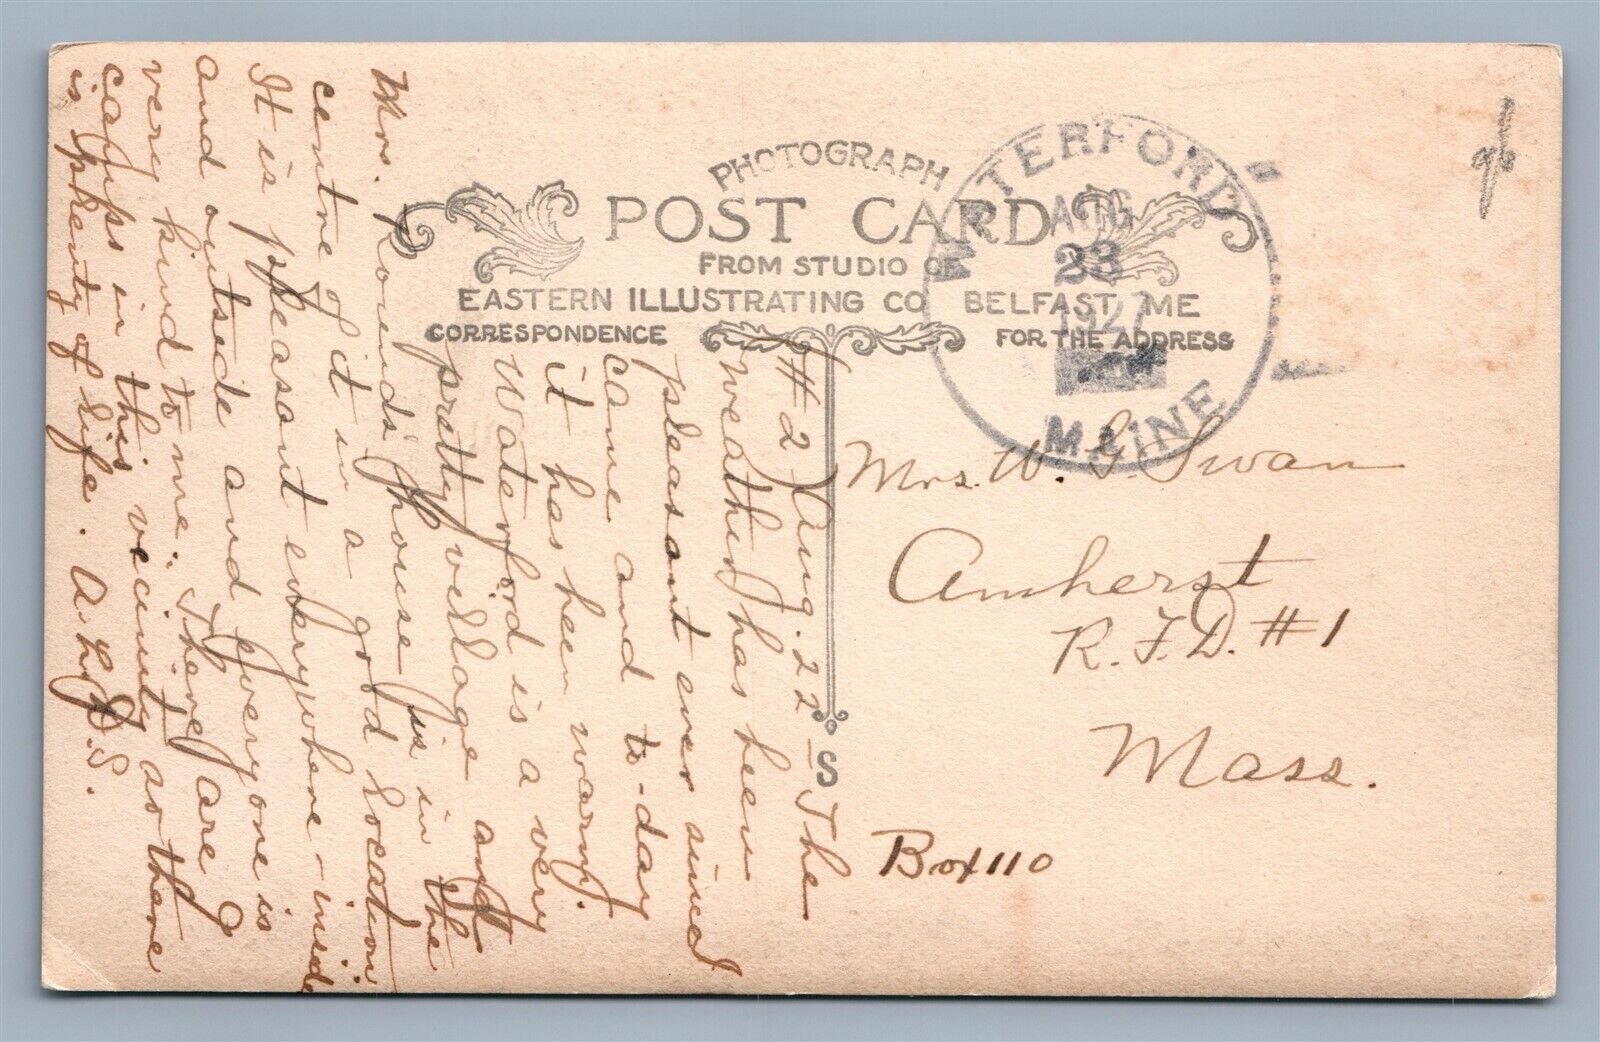 PHOTOGRAPH
POST CARD
FROM STUDIO OF
EASTERN ILLUSTRATING CO BELFAST, ME
CORRESPONDENCE
FOR THE ADDRESS
WATERFORD
AUG
23
1927
MAINE
S
#2 Aug. 22 - The
weather has been
pleasant ever since I
came and to-day
it has been warm.
Waterford is a very
pretty village and
Mrs. Round's house is in the
centre of it in a good location
It is pleasant everywhere - inside
and outside and everyone is
very kind to me. There are 9
camps in this vicinity so there
is plenty of life. A.
Mrs. W. G. Swan
Amherst
R.F.D. #1
Mass.
Box 110